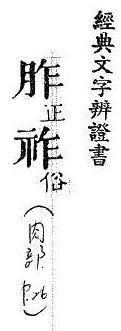 經典文字辨證書
胙正祚俗(肉部 P.26)